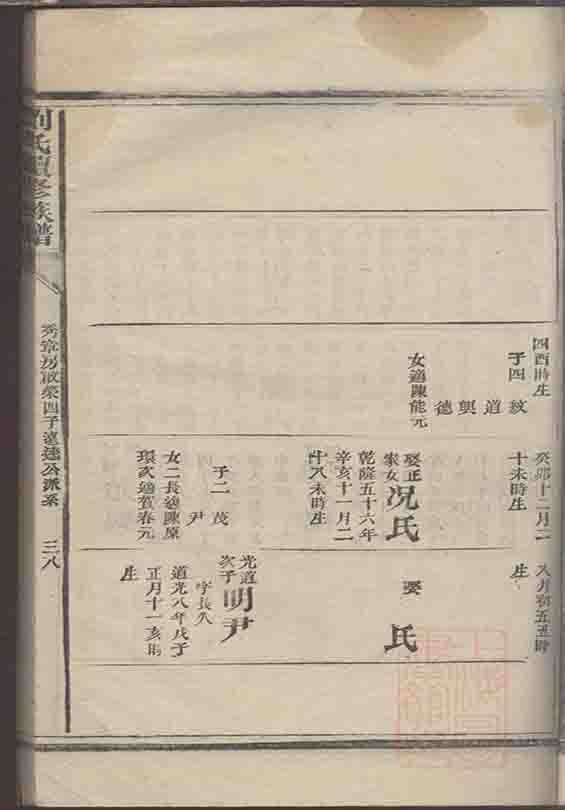 劉氏續修族譜
房啟榮四子遠達公派系
三八
四酉時生
子四
紋
道
興
德
女適陳能元
癸卯十二月二
十未時生
娶正
家女
况氏
乾隆五十六年
辛亥十一月二
十八未時生
子二
茂
尹
女二長適陳原
環次適賀春元
八月初五丑時
生
娶
氏
光道
次子
明尹
字長久
道光八年戊子
正月十一亥時
生